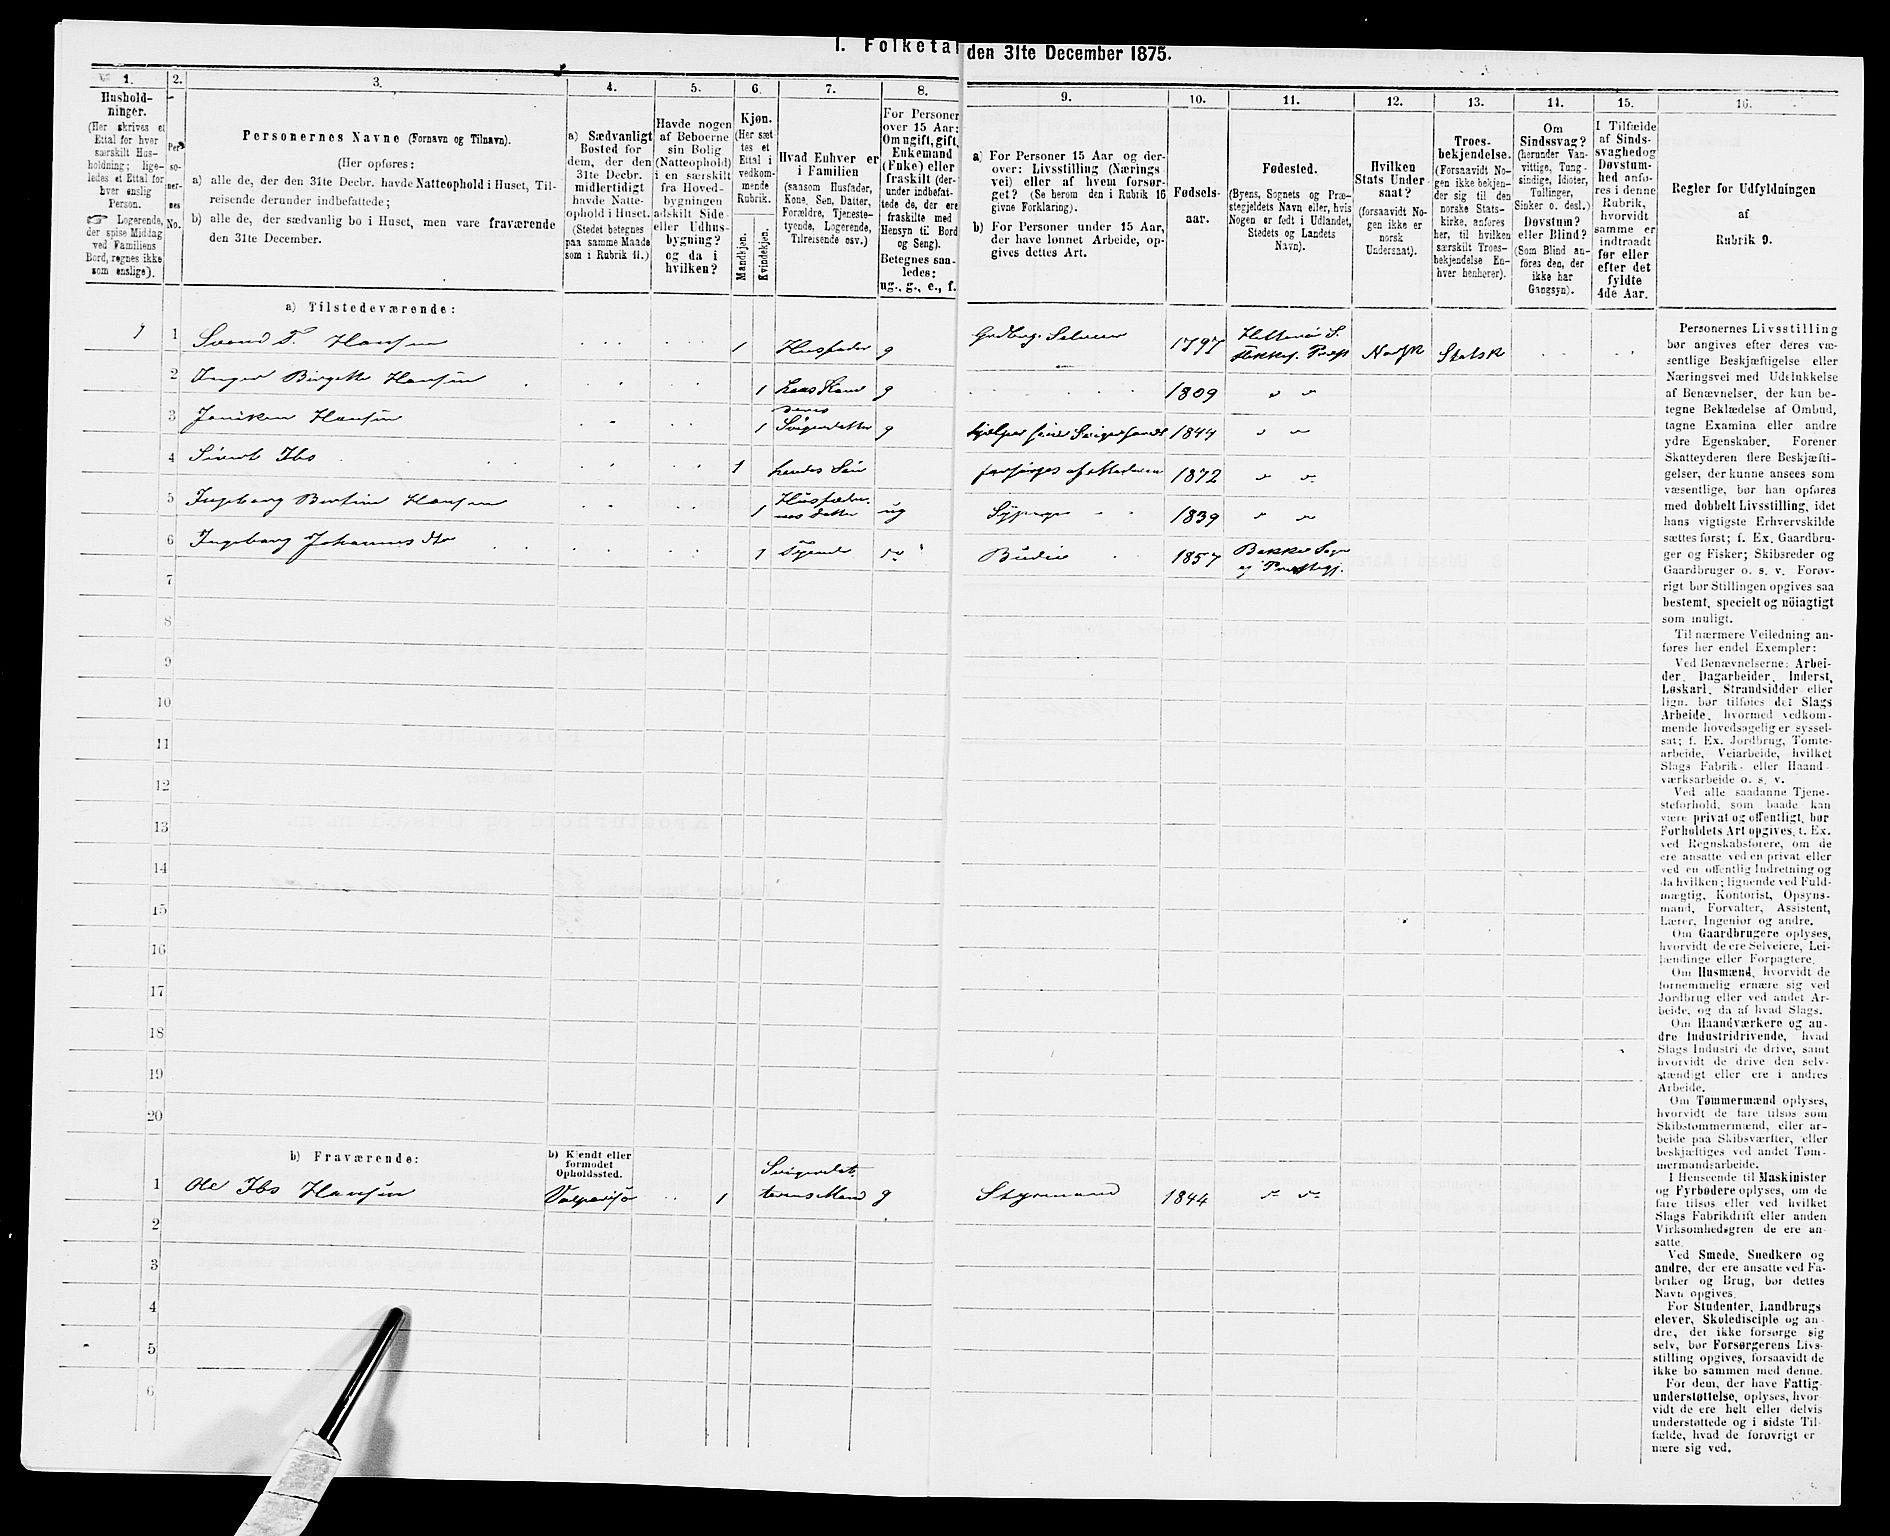 I. Folketal
den 31te December 1875.
1.
Hushold-
ninger.
(Her skrives et
Ettal for hver
særskilt Hus-
holdning; lige-
ledes et Ettal for
hver enslig
Person.
☞ Logerende,
der spise Middag
ved Familiens
Bord, regnes ikke
som enslige).
2.
Per-
so-
ner-
nes
No.
3.
Personernes Navne (Fornavn og Tilnavn).
(Her opføres:
a) alle de, der den 31te Decbr. havde Natteophold i Huset, Til-
reisende derunder indbefattede;
b) alle de, der sædvanlig bo i Huset, men vare fraværende
den 31te December.
4.
a) Sædvanligt
Bosted for
dem, der den
31te Decbr.
midlertidigt
havde Natte-
ophold i Huset.
(Stedet betegnes
paa samme Maade
som i Rubrik 11.)
5.
Havde nogen
af Beboerne
sin Bolig
(Natteophold)
i en særskilt
fra Hoved-
bygningen
adskilt Side-
eller Udhus-
bygning?
og da i
hvilken?
6.
Kjøn.
(Her sæt-
tes et
Ettal i
vedkom-
mende
Rubrik.
Mandkjøn.
Kvindekjøn.
7.
Hvad Enhver er
i Familien
(saasom Husfader,
Kone, Søn, Datter,
Forældre, Tjeneste-
tyende, Logerende,
Tilreisende osv.)
8.
For Personer
over 15 Aar:
Om ugift, gift,
Enkemand
(Enke) eller
fraskilt (der-
under indbefat-
tede de, der ere
fraskilte med
Hensyn til Bord
og Seng).
Betegnes saa-
ledes:
ug., g., e., f.
9.
a) For Personer 15 Aar og der-
over: Livsstilling (Nærings-
vei) eller af hvem forsør-
get? (Se herom den i Rubrik 16
givne Forklaring).
b) For Personer under 15 Aar,
der have lønnet Arbeide, op-
gives dettes Art.
10.
Fødsels-
aar.
11.
Fødested.
(Byens, Sognets og Præ-
stegjeldets Navn eller, hvis
Nogen er født i Udlandet,
Stedets og Landets
Navn).
12.
Hvilken
Stats Under-
saat?
(forsaavidt No-
gen ikke er
norsk
Undersaat).
13.
Troes-
bekjendelse.
(Forsaavidt No-
gen ikke bekjen-
der sig til den
norske Stats-
kirke, anføres
her, til hvilken
særskilt Troes-
bekjendelse En-
hver henhører).
14.
Om
Sindssvag?
(herunder Van-
vittige, Tung-
sindige, Idioter,
Tullinger,
Sinker o. desl.)
Døvstum?
eller Blind?
(Som Blind an-
føres den, der
ikke har
Gangsyn).
15.
I Tilfælde
af Sinds-
svaghed og
Døvstum-
hed anfø-
res i denne
Rubrik,
hvorvidt
samme er
indtraadt
før eller
efter det
fyldte
4de Aar.
16.
Regler for Udfyldningen
af
Rubrik 9.
a) Tilstedeværende:
1 1 Svend T. Hansen 1 Husfader g Gaardbrug. Selveier 1797 Hitterø S. Norsk Statsk
Flekkef. Præst
2 Inger Birgette Hansen 1 hans Kone g 1809 " "
3 Janiken Hansen 1 deres
Svigerdatter g hjælper sine Svigerforæld 1844 " "
4 Sivert Ibs 1 hendes Søn forsørges af Moderen 1872 " "
5 Ingeborg Bertine Hansen 1 Husfader-
nes datter ug Sypige 1839 " "
6 Ingeborg Johannesdtr 1 Tyende Budeie 1857 Bakke Sogn
og Præstegj.
7
8
9
10
11
12
13
14
15
16
17
18
19
20
b) Fraværende:
b) Kjendt eller
formodet
Opholdssted.
1 Ole Ibs Hansen Valpariso 1 Svigerdat-
terens Mand g Styrmand 1844 " "
2
3
4
5
6
Personernes Livsstilling
bør angives efter deres væ-
sentlige Beskjæftigelse eller
Næringsvei med Udelukkelse
af Benævnelser, der kun be-
tegne Beklædelse af Ombud,
tagne Examina eller andre
ydre Egenskaber. Forener
Skatteyderen flere Beskjæfti-
gelser, der kunne ansees som
væsentlige, bør han opføres
med dobbelt Livsstilling, idet
hans vigtigste Erhvervskilde
sættes først; f. Ex. Gaardbru-
ger og Fisker; Skibsreder og
Gaardbruger o. s. v. Forøv-
rigt bør Stillingen opgives saa
bestemt, specielt og nöiagtigt
som muligt.
Til nærmere Veiledning an-
føres her endel Exempler:
Ved Benævnelserne: Arbei-
der, Dagarbeider, Inderst,
Løskarl, Strandsidder eller
lign. bør tilføies det Slags
Arbeide, hvormed vedkom-
mende hovedsagelig er syssel-
sat; f. Ex. Jordbrug, Tomte-
arbeide, Veiarbeide, hvilket
Slags Fabrik- eller Haand-
værksarbeide o. s. v.
Ved alle saadanne Tjene-
steforhold, som baade kan
være privat og offentligt, bør
Forholdets Art opgives, t. Ex.
ved Regnskabsførere, om de
ere ansatte ved en privat eller
ved en offentlig Indretning og
da hvilken; lignende ved Fuld-
mægtig, Kontorist, Opsyns-
mand, Forvalter, Assistent,
Lærer, Ingeniør og andre.
Om Gaardbrugere oplyses,
hvorvidt de ere Selveiere, Lei-
lændinge eller Forpagtere.
Om Husmænd, hvorvidt de
fornemmelig ernære sig ved
Jordbrug eller ved andet Ar-
beide, og da af hvad Slags.
Om Haandværkere og an-
dre Industridrivende, hvad
Slags Industri de drive, samt
hvorvidt de drive den selv-
stændigt eller ere i andres
Arbeide.
Om Tømmermænd oplyses,
hvorvidt de fare tilsøs som
Skibstømmermænd, eller ar-
beide paa Skibsværfter, eller
beskjæftiges ved andet Tøm-
mermandsarbeide.
I Henseende til Maskinister
og Fyrbødere oplyses, om de
fare tilsøs eller ved hvilket
Slags Fabrikdrift eller anden
Virksomhedsgren de ere an-
satte.
Ved Smede, Snedkere og
andre, der ere ansatte ved Fa-
briker og Brug, bør dettes
Navn opgives.
For Studenter, Landbrugs
elever, Skoledisciple og an-
dre, der ikke forsørge sig
selv, bør Forsørgerens Livs-
stilling opgives, forsaavidt de
ikke bo sammen med denne.
For dem, der have Fattig-
understøttelse, oplyses, hvor-
vidt de ere helt eller delvis
understøttede og i sidste Til-
fælde, hvad de forøvrigt er
nære sig ved.